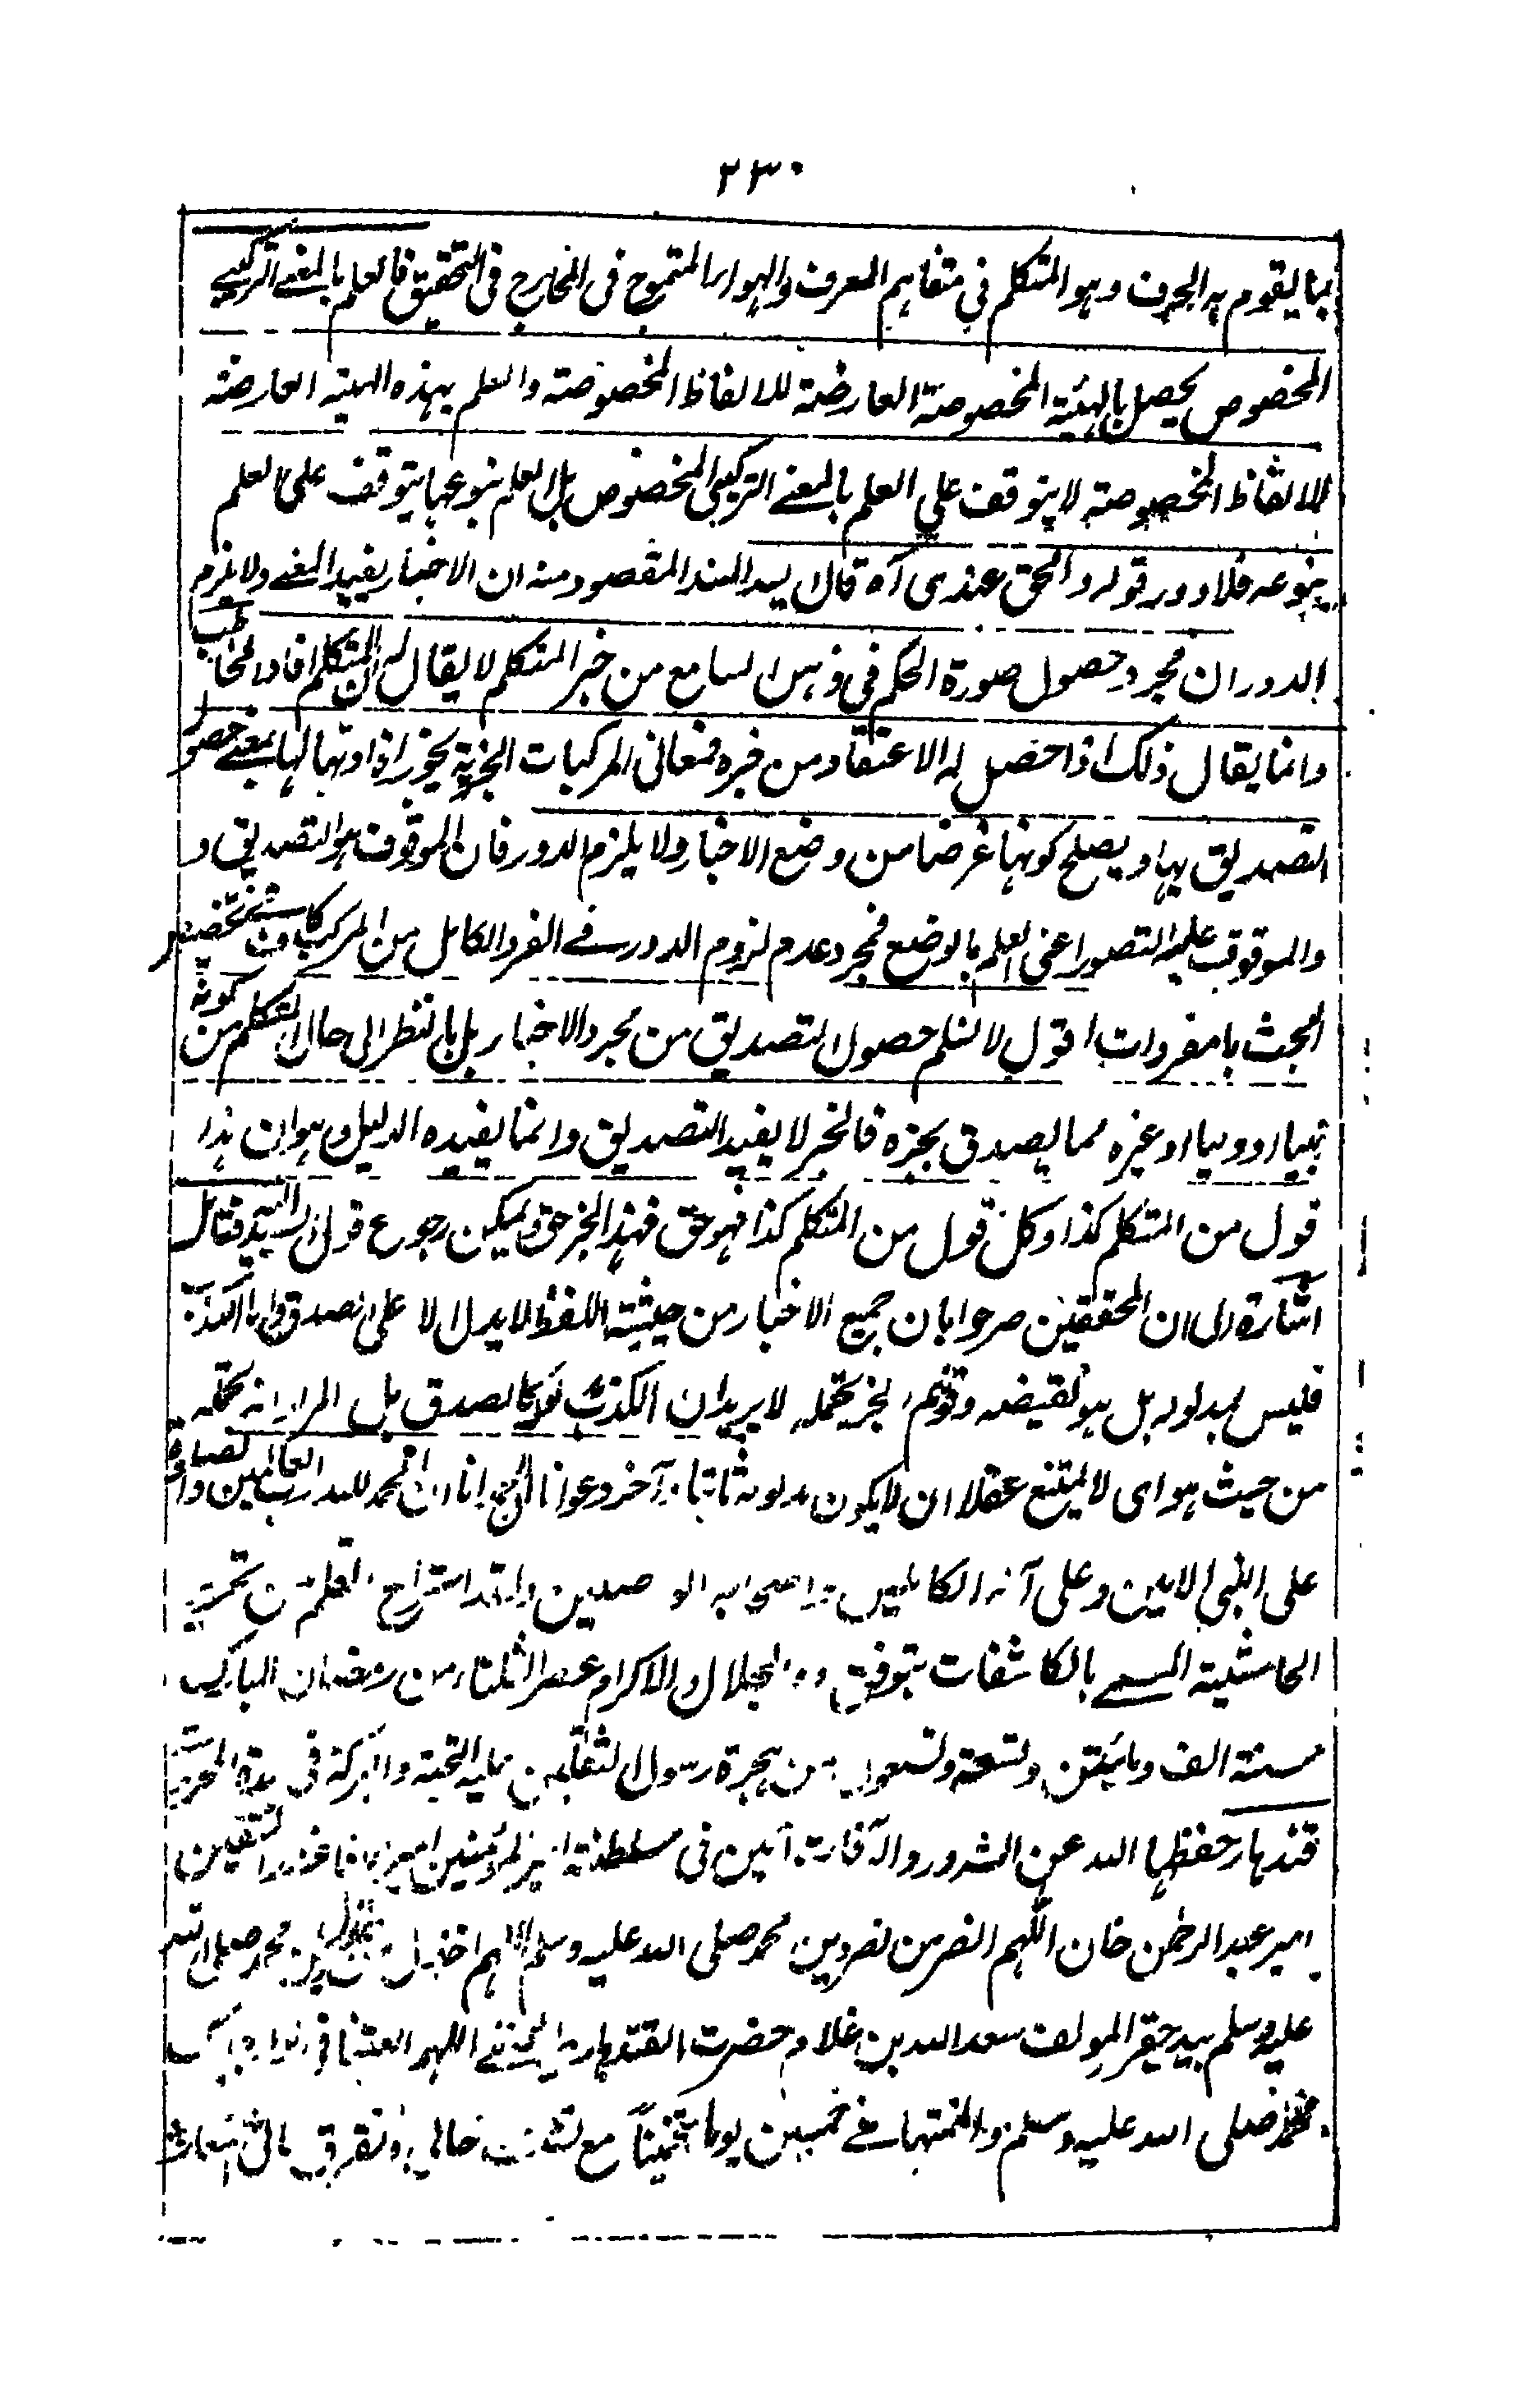 ٢٣٠
بما يقوم به الحرف وهو المتكلم في متفاهم العرف والهواء المتموج في المخارج في التحقيق فالعلم بالمعنے التركيبے
المخصوص يحصل بالهيئة المخصوصة العارضة للالفاظ المخصوصة والعلم بهذه الهيئة العارضة
للالفاظ المخصوصة لا يتوقف علي العلم بالمعنے التركيبي المخصوص بل العلم بنوعها يتوقف على العلم
بنوعه فلا دور قوله والحق عندى آه قال السيد السند المقصود منه ان الاخبار يفيد المعنے ولا يلزم
الدور ان مجرد حصول صورة الحكم في ذهن السامع من خبر المتكلم لا يقال له ان المتكلم افاد المخاطب
وانما يقال ذلك اذا حصل له الاعتقاد من خبره فمعانى المركبات الخبرية يجوز افادتها لها بمعنے حصول
التصديق بها ويصلح كونها غرضا من وضع الاخبار ولا يلزم الدور فان الموقوف هو التصديق و
والموقوف عليه التصور اعنى العلم بالوضع فمجرد عدم لزوم الدور فے الفرد الكامل من المركبات تخصيص
البحث بالمفردات اقول لا نسلم حصول التصديق من مجرد الاخبار بل بالنظر الى حال المتكلم من كونه
نبيا او وليا او غيره مما يصدق بخبره فالخبر لا يفيد التصديق وانما يفيده الدليل وهو ان هذا
قول من المتكلم كذا وكل قول من المتكلم كذا فهو حق فهذا الخبر حق ويمكن رجوع قول السيد فتامل
اشارة الى ان المحققين صرحوا بان جميع الاخبار من حيثية اللفظ لا يدل الا على الصدق واما الكذب
فليس بمدلوله بل هو نقيضه وقولهم الخبر يحتمله لا يريد ان الكذب مدلوله كالصدق بل المراد انه يحتمله
من حيث هو اى لا يمتنع عقلا ان لا يكون مدلوله ثابتا آخر دعوانا ان الحمد لله رب العالمين والصلوة
على النبي الامين وعلى آله الكاملين واصحابه الواصلين وقد استراح القلم من تحرير
الحاشية المسمے بالكاشفات بتوفيق ذى الجلال والاكرام عصر الثلثاء من رمضان المبارك
سنة الف ومائتين وتسعة وتسعون من هجرة رسول الثقلين عليه التحية والبركة فى بلدة
قندهار حفظها الله عن الشرور والآفات آمين فى سلطنة امير المؤمنين
امير عبد الرحمن خان اللهم انصر من نصر دين محمد صلى الله عليه وسلم اللهم اخذل من خذل دين محمد صلى الله
عليه وسلم بيد حقير المولف سعد الله بن غلام حضرت القندهارى اللهم
محمد صلى الله عليه وسلم والفتها فے خمسين يوما تخمينا مع تشتت حالى وتفرق بالى